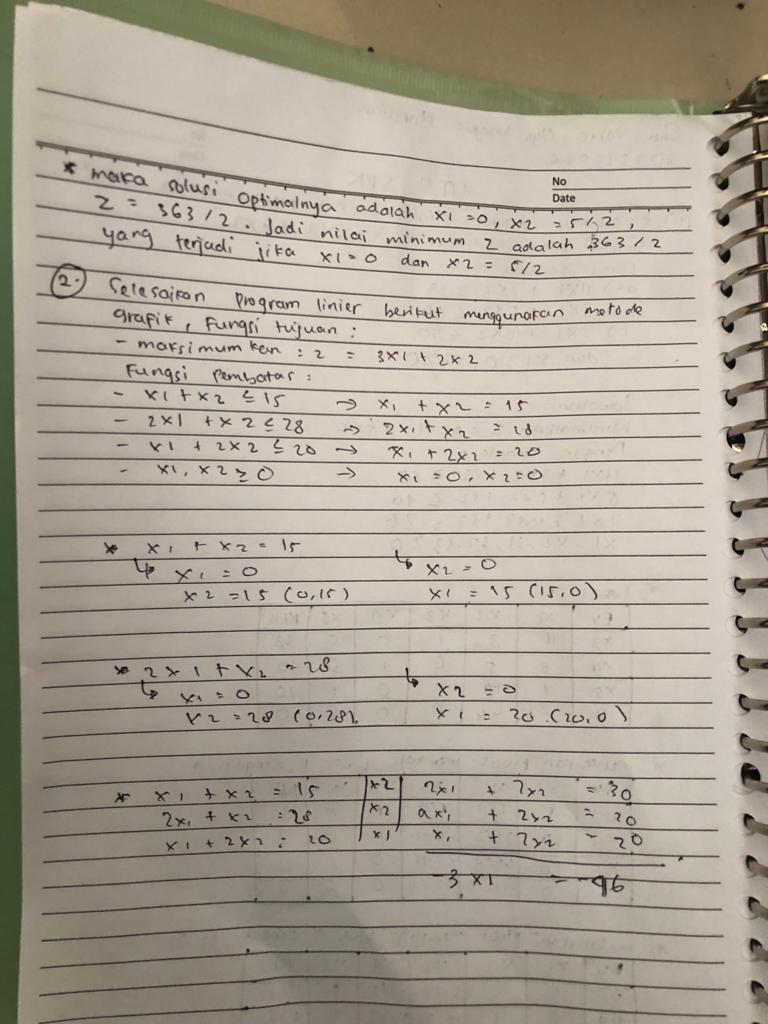 No
Date
* maka solusi optimalnya adalah x1 = 0, x2 = 5/2,
Z = 363/2. Jadi nilai minimum Z adalah 363/2
yang terjadi jika x1 = 0 dan x2 = 5/2
2. Selesaikan program linier berikut menggunakan metode
grafik, Fungsi tujuan :
- maksimumkan : z = 3x1 + 2x2
Fungsi Pembatas :
- x1 + x2 ≤ 15 → x1 + x2 = 15
- 2x1 + x2 ≤ 28 → 2x1 + x2 = 28
- x1 + 2x2 ≤ 20 → x1 + 2x2 = 20
- x1, x2 ≥ 0 → x1 = 0, x2 = 0
* x1 + x2 = 15
↳ x1 = 0 ↳ x2 = 0
x2 = 15 (0,15) x1 = 15 (15,0)
* 2x1 + x2 = 28
↳ x1 = 0 ↳ x2 = 0
x2 = 28 (0,28). x1 = 20 (20,0)
* x1 + x2 = 15 |x2| 2x1 + 2x2 = 30
2x1 + x2 = 28 |x2| ax1 + 2x2 = 20
x1 + 2x2 = 20 |x1| x1 + 2x2 = 20
-3x1 = -96